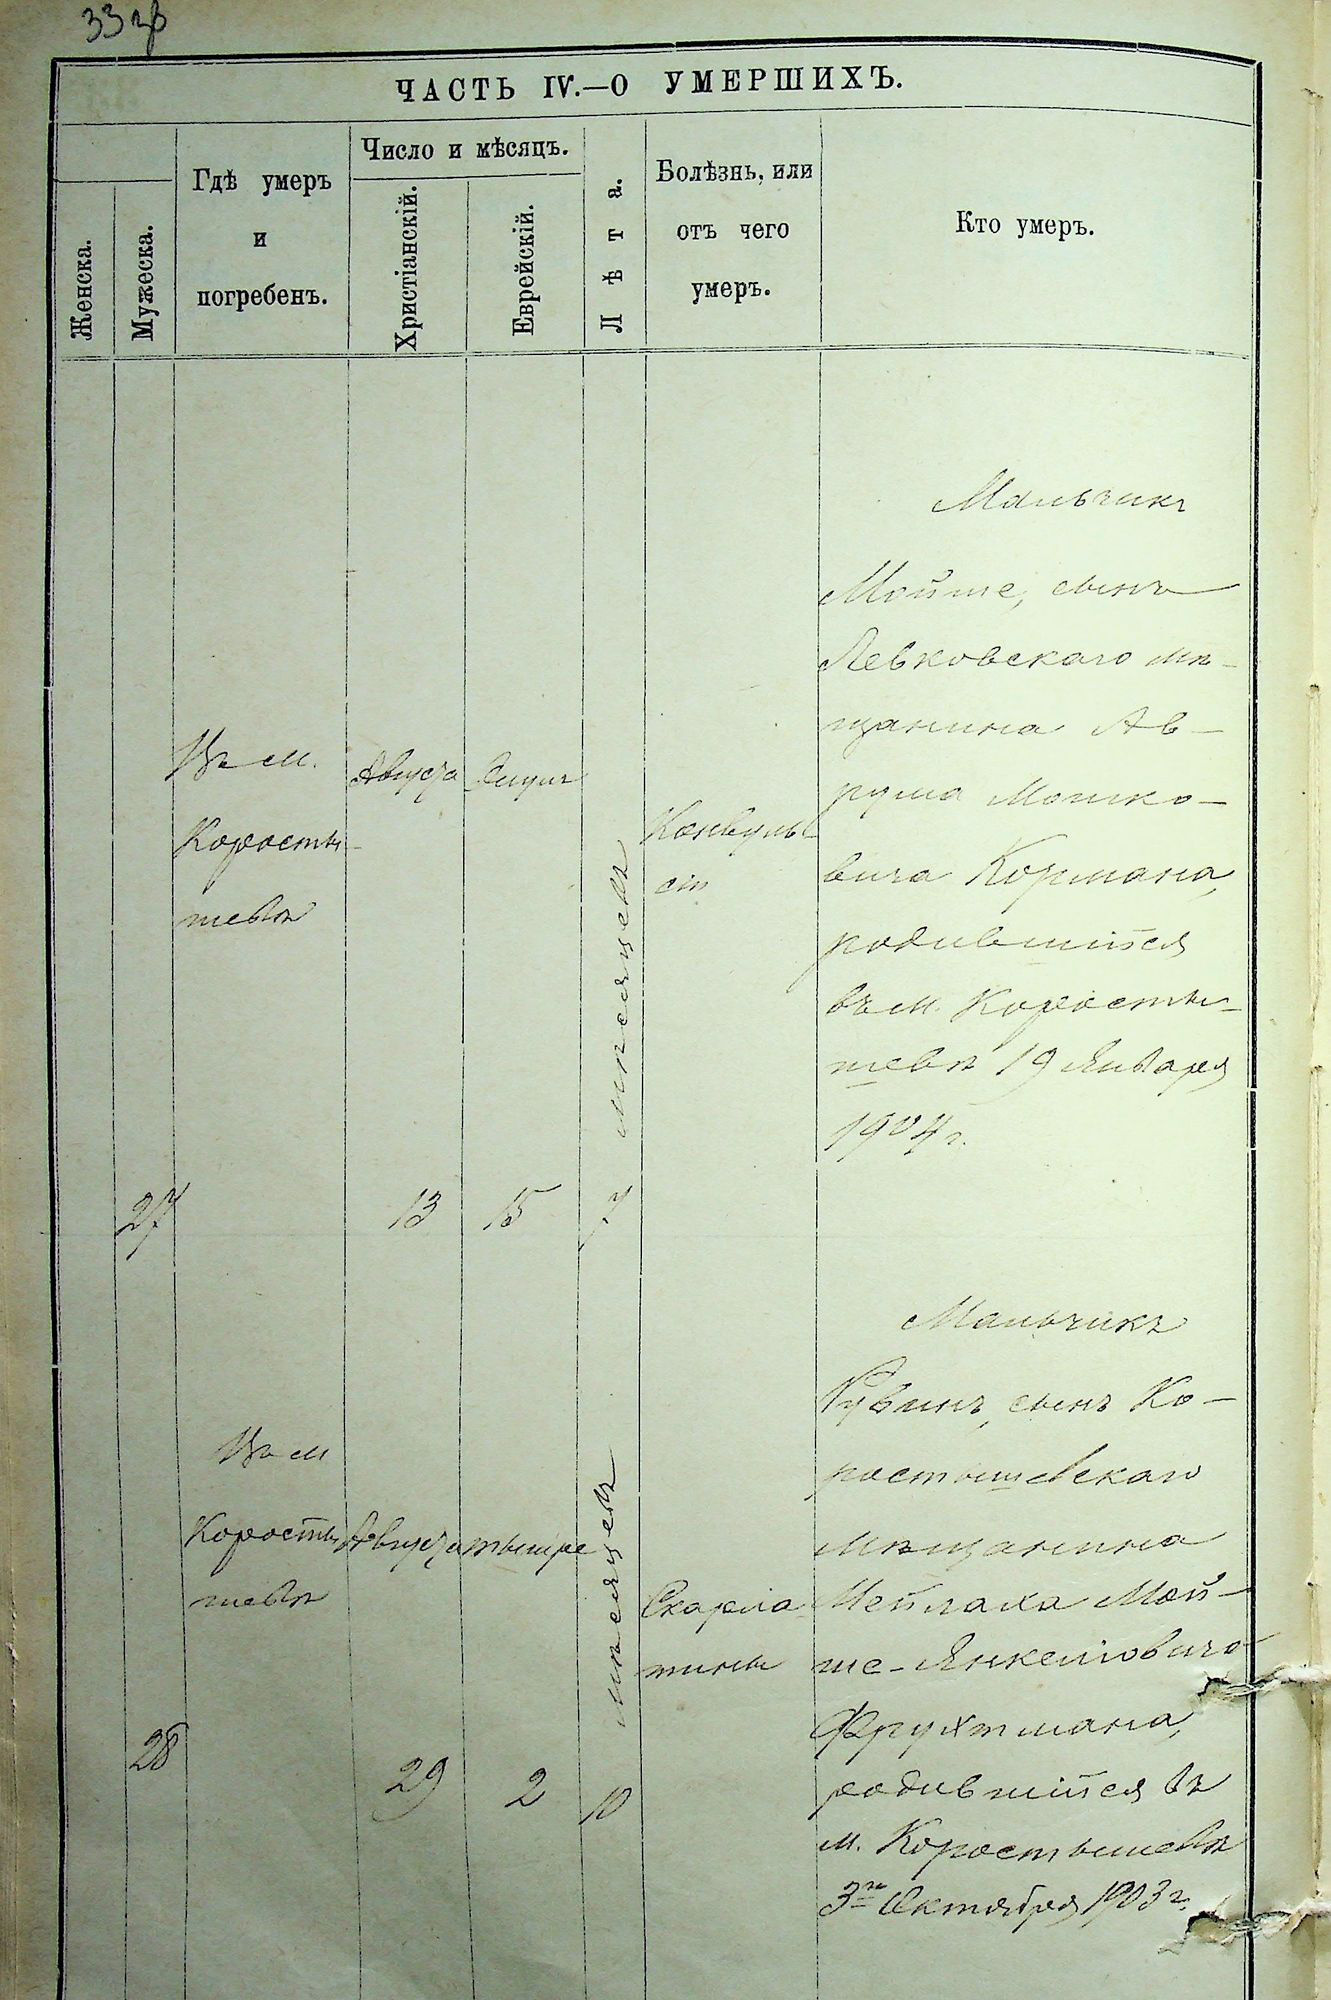 33 зв
ЧАСТЬ IV.—О УМЕРШИХЪ.
Женска.
Мужеска.
Гдѣ умеръ
и
погребенъ.
Число и мѣсяцъ.
Христіанскій.
Еврейскій.
Лѣта.
Болѣзнь, или
отъ чего
умеръ.
Кто умеръ.
27
Въ м.
Коросты-
шевѣ
Августа
13
15
7 мѣсяцевъ
Конвуль-
сіи
Мальчикъ
Мойше, сынъ
Левковскаго мѣ-
щанина Ав-
рума Мошко-
вича Кормана,
родившійся
въ м. Коросты-
шевѣ 19 Января
1904 г.
28
Въ м
Коросты
шевѣ
Августа
29
тышре
2
10 мѣсяцевъ
Скарла-
тины
Мальчикъ
Рувинъ, сынъ Ко-
ростышевскаго
мѣщанина
Мейлаха Мой-
ше-Янкелiовича
Фрухтмана,
родившійся въ
м. Коростышевѣ
3го Октября 1903 г.